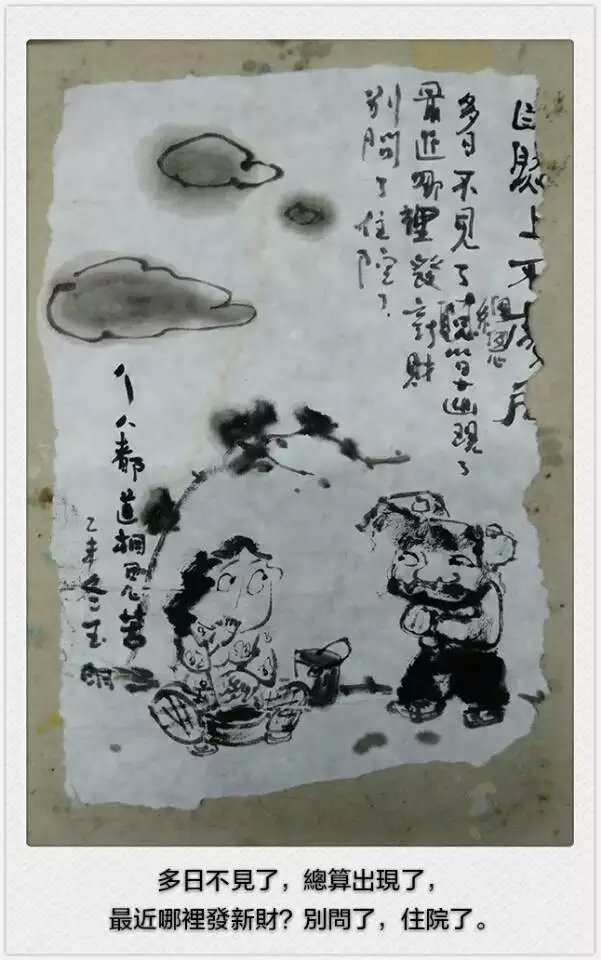 上不
多日不見了總算出現了
最近哪裡發新財
別問了住院了
人都道相苦
乙未冬玉明
多日不見了，總算出現了，
最近哪裡發新財？別問了，住院了。